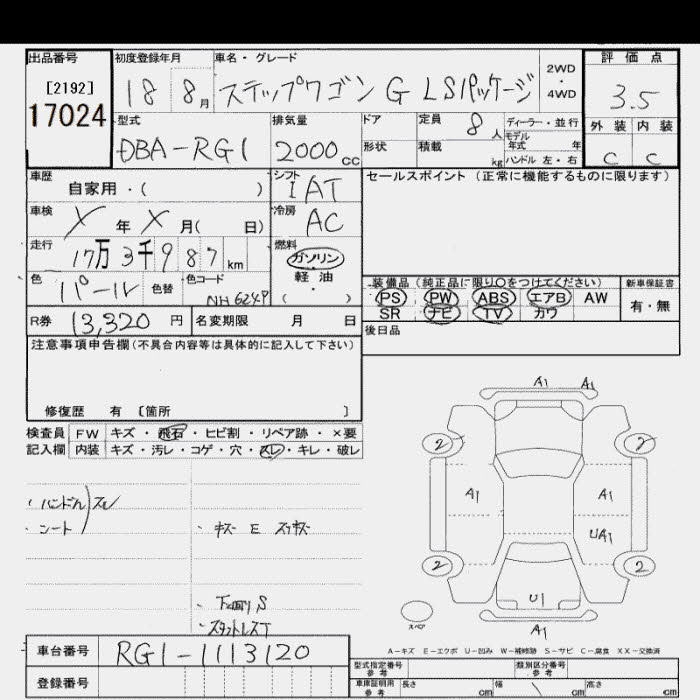 出品番号 初度登録年月 車名・グレード 2WD・4WD 評価点
[2192]
17024
18 8月 ステップワゴン G LSパッケージ 3.5
型式 排気量 ドア 定員 8人 ディーラー・並行 外装 内装
DBA-RG1 2000cc 形状 積載 kg モデル年式 年 C C
ハンドル 左・右
車歴 シフト セールスポイント(正常に機能するものに限ります)
自家用・( ) IAT
車検 X年X月( 日) 冷房 AC
走行 17万3千987km 燃料 ガソリン
軽油
( )
色 パール 色替 色コード NH624P
装備品(純正品に限り○をつけてください) 新車保証書
PS PW ABS エアB AW 有・無
SR ナビ TV カワ
R券 13,320円 名変期限 月 日 後日品
注意事項申告欄(不具合内容等は具体的に記入して下さい)
修復歴 有 〔箇所 〕
検査員 FW キズ・飛石・ヒビ割・リペア跡・×要
記入欄 内装 キズ・汚レ・コゲ・穴・スレ・キレ・破レ
A1 A1
2 2
A1 A1
UA1
2 2
U1
A1
・ハンドル スレ
・シート
・キズ E スリキズ
・下回り S
・スタットレスT
スペア
A-キズ E-エクボ U-凹み W-補修跡 S-サビ C-腐食 XX-交換済
車台番号 RG1-1113120
登録番号
型式指定番号 参考 類別区分番号 参考
車庫証明用 参考 長さ cm 幅 cm 高さ cm